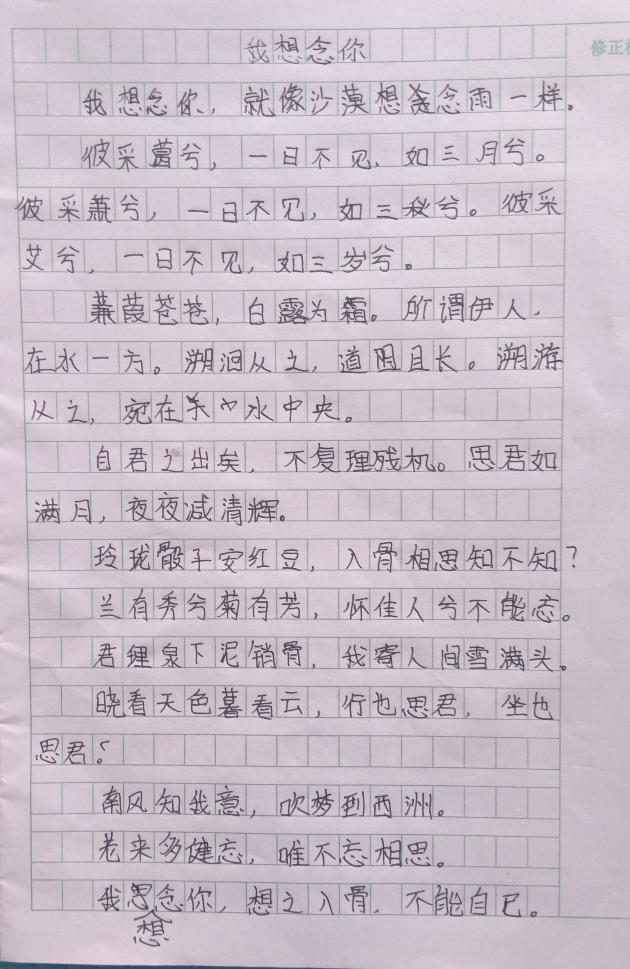 修正
我想念你
我想念你，就像沙漠想念雨一样。
彼采葛兮，一日不见，如三月兮。
彼采萧兮，一日不见，如三秋兮。彼采
艾兮，一日不见，如三岁兮。
蒹葭苍苍，白露为霜。所谓伊人，
在水一方。溯洄从之，道阻且长。溯游
从之，宛在水中央。
自君之出矣，不复理残机。思君如
满月，夜夜减清辉。
玲珑骰子安红豆，入骨相思知不知？
兰有秀兮菊有芳，怀佳人兮不能忘。
君狸泉下泥销骨，我寄人间雪满头。
晓看天色暮看云，行也思君，坐也
思君！
南风知我意，吹梦到西洲。
老来多健忘，唯不忘相思。
我想念你，想之入骨，不能自已。